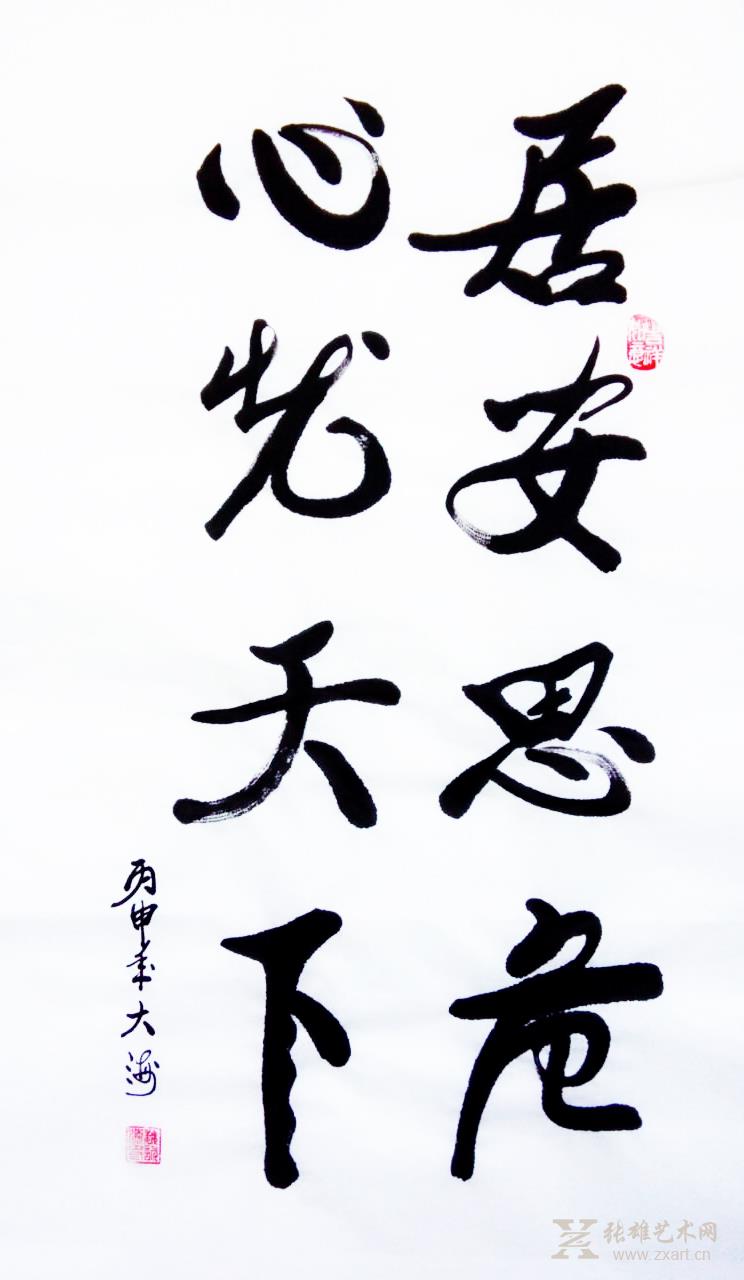 居安思危
心忧天下
丙申年大海
张雄艺术网
www.zxart.cn